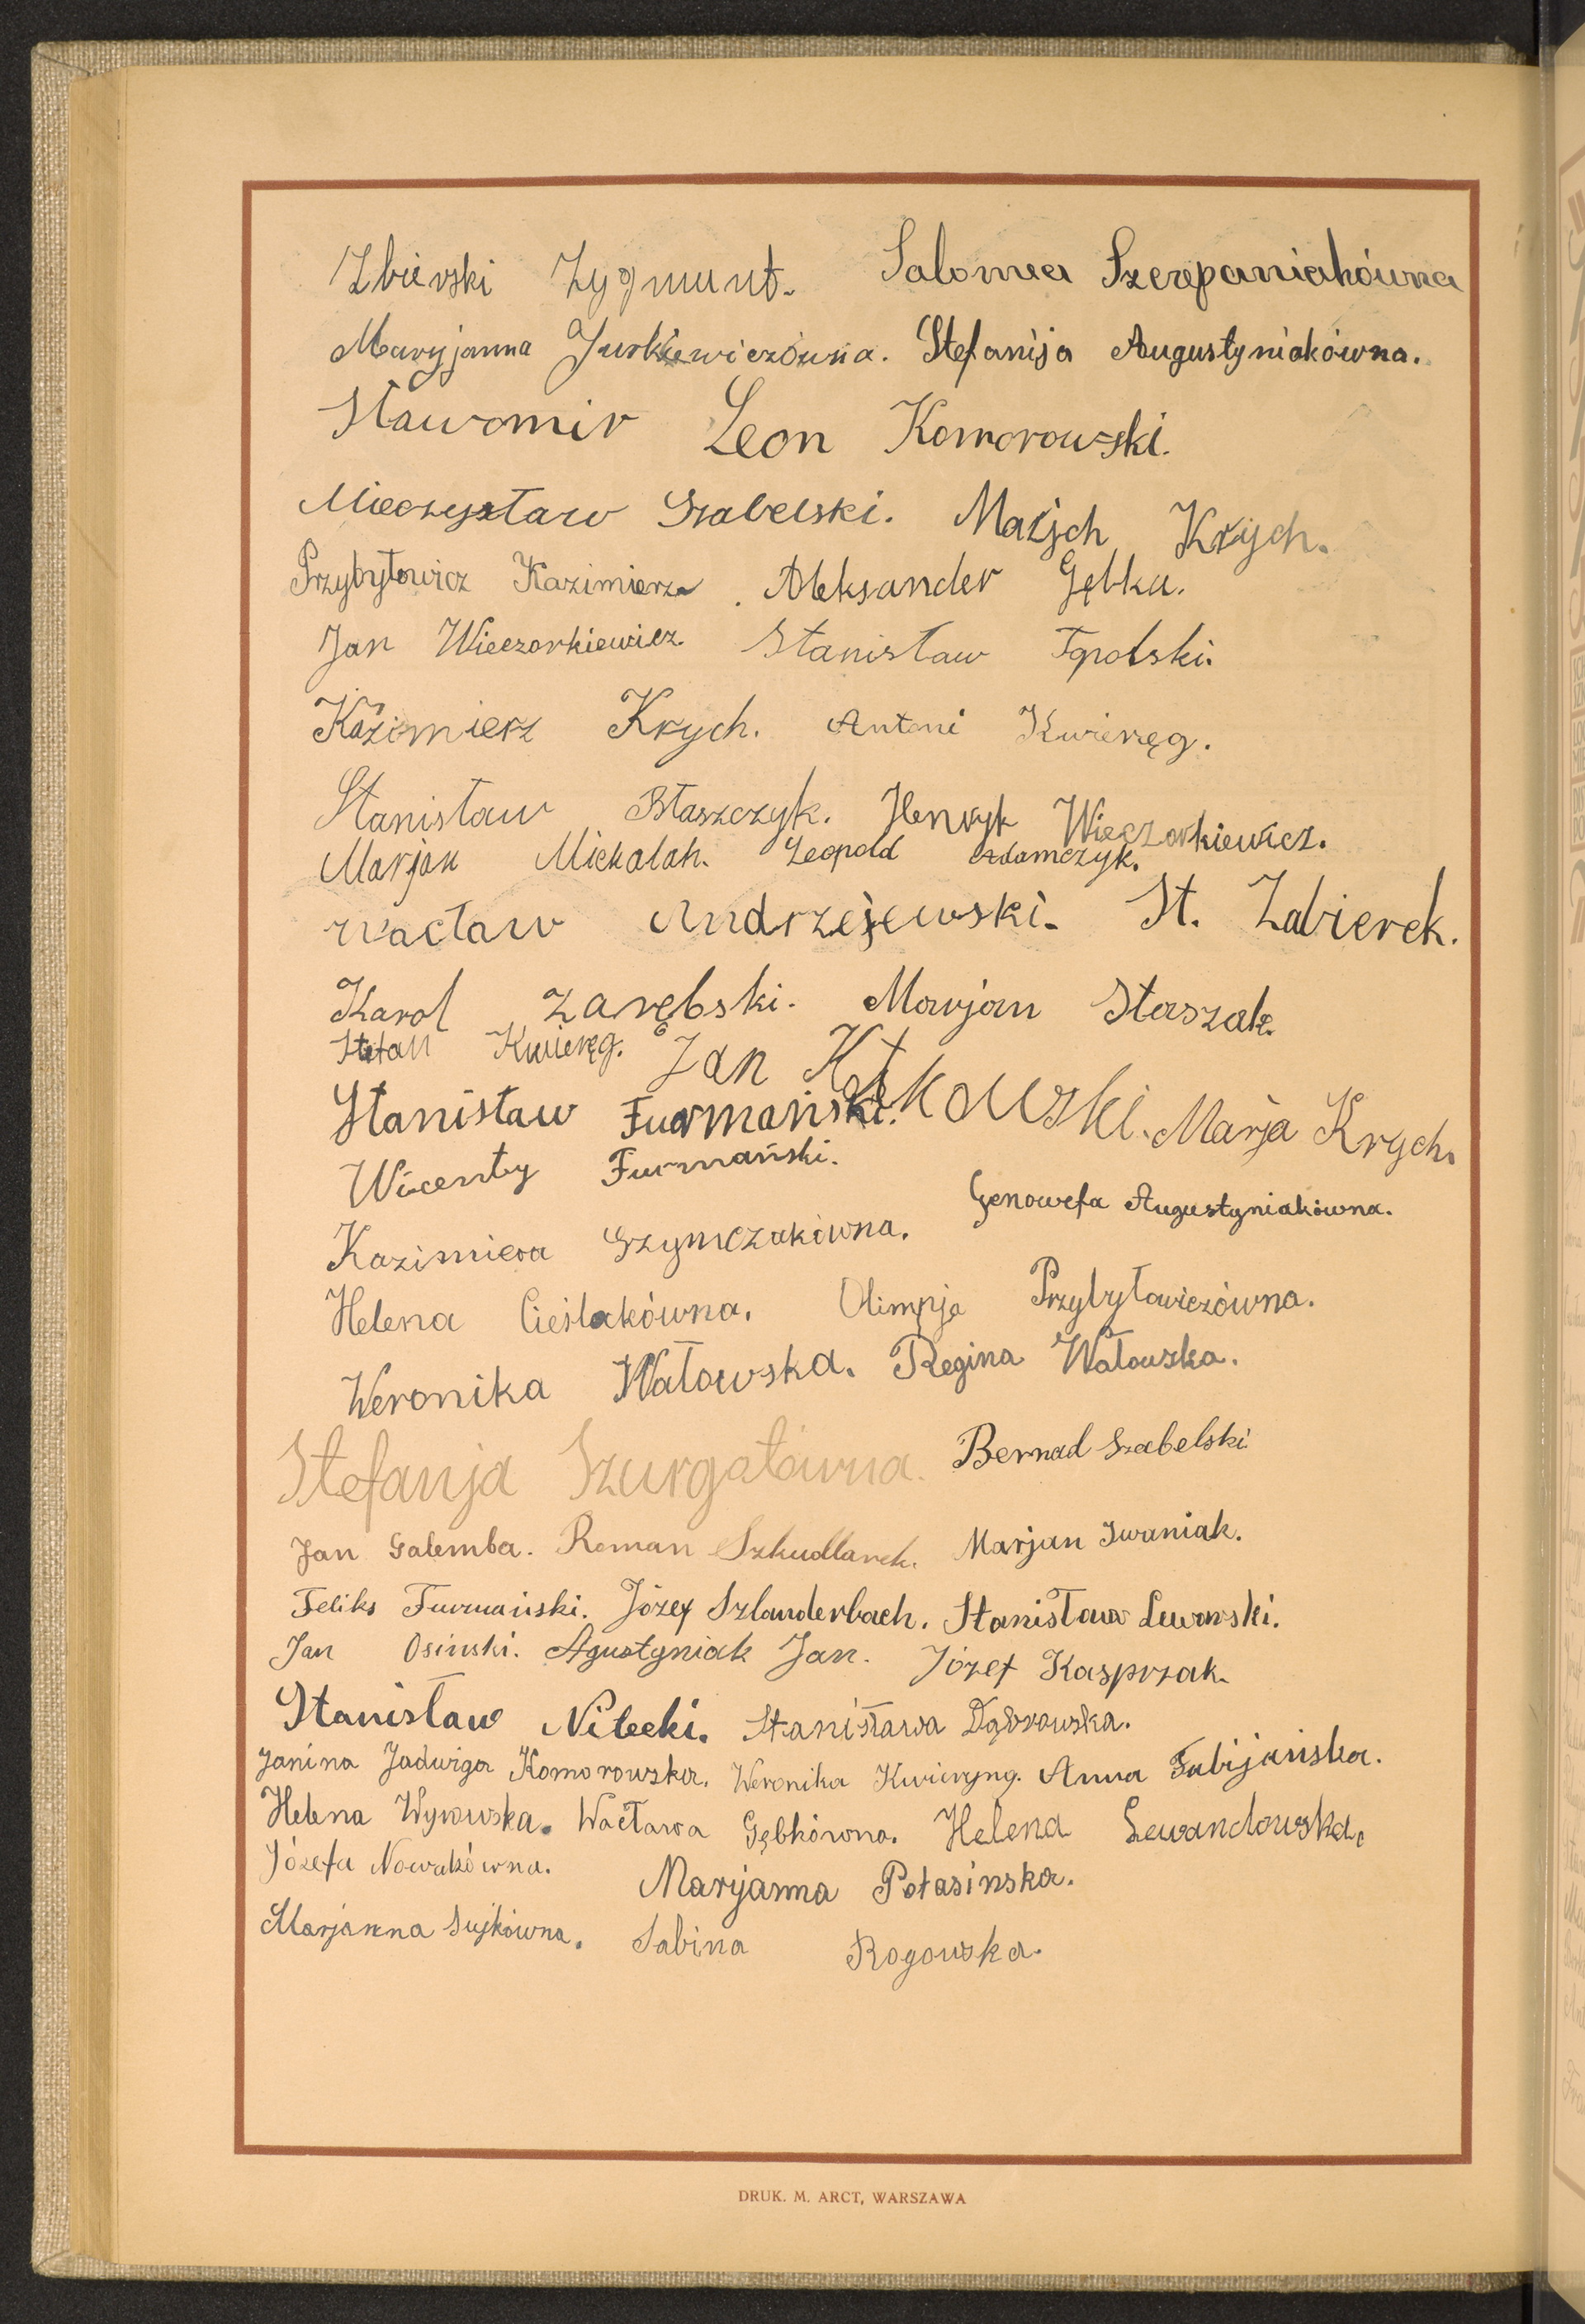 Zbierski Zygmunt. Salomea Szczepaniakówna
Maryjanna Jurkiewiczówna. Stefanija Augustyniakówna.
Sławomir Leon Komorowski.
Mieczysław Szabelski. Marjch Krych.
Przybyłowicz Kazimierz. Aleksander Gębka.
Jan Wieczorkiewicz. Stanisław Topolski.
Kazimierz Krych. Antoni Kwieręg.
Stanisław Błaszczyk. Henryk Wieczorkiewicz.
Marjan Michalak. Leopold Adamczyk.
Wacław Andrzejewski. St. Zabierek.
Karol Zarębski. Marjan Staszak.
Stefan Kwieręg. Jan Kotkowski. Marja Krych.
Stanisław Furmański.
Wicenty Furmański.
Kazimiera Szymczakówna. Genowefa Augustyniakówna.
Helena Cieślakówna. Olimpja Przybyłowiczówna.
Weronika Wałowska. Regina Wałowska.
Stefanja Szurgotówna. Bernad Szabelski
Jan Galemba. Roman Szkudlarek. Marjan Iwaniak.
Feliks Furmański. Józef Szlanderbach. Stanisław Lewowski.
Jan Osinski. Agustyniak Jan. Józef Kasprzak.
Stanisław Nitecki. Stanisława Dąbrowska.
Janina Jadwiga Komorowska. Weronika Kwieryng. Anna Fabijańska.
Helena Wyrowska. Wacława Gębkówna. Helena Lewandowska.
Józefa Nowakówna. Maryanna Potasinska.
Marjanna Sujkówna. Sabina Rogowska.
DRUK. M. ARCT, WARSZAWA